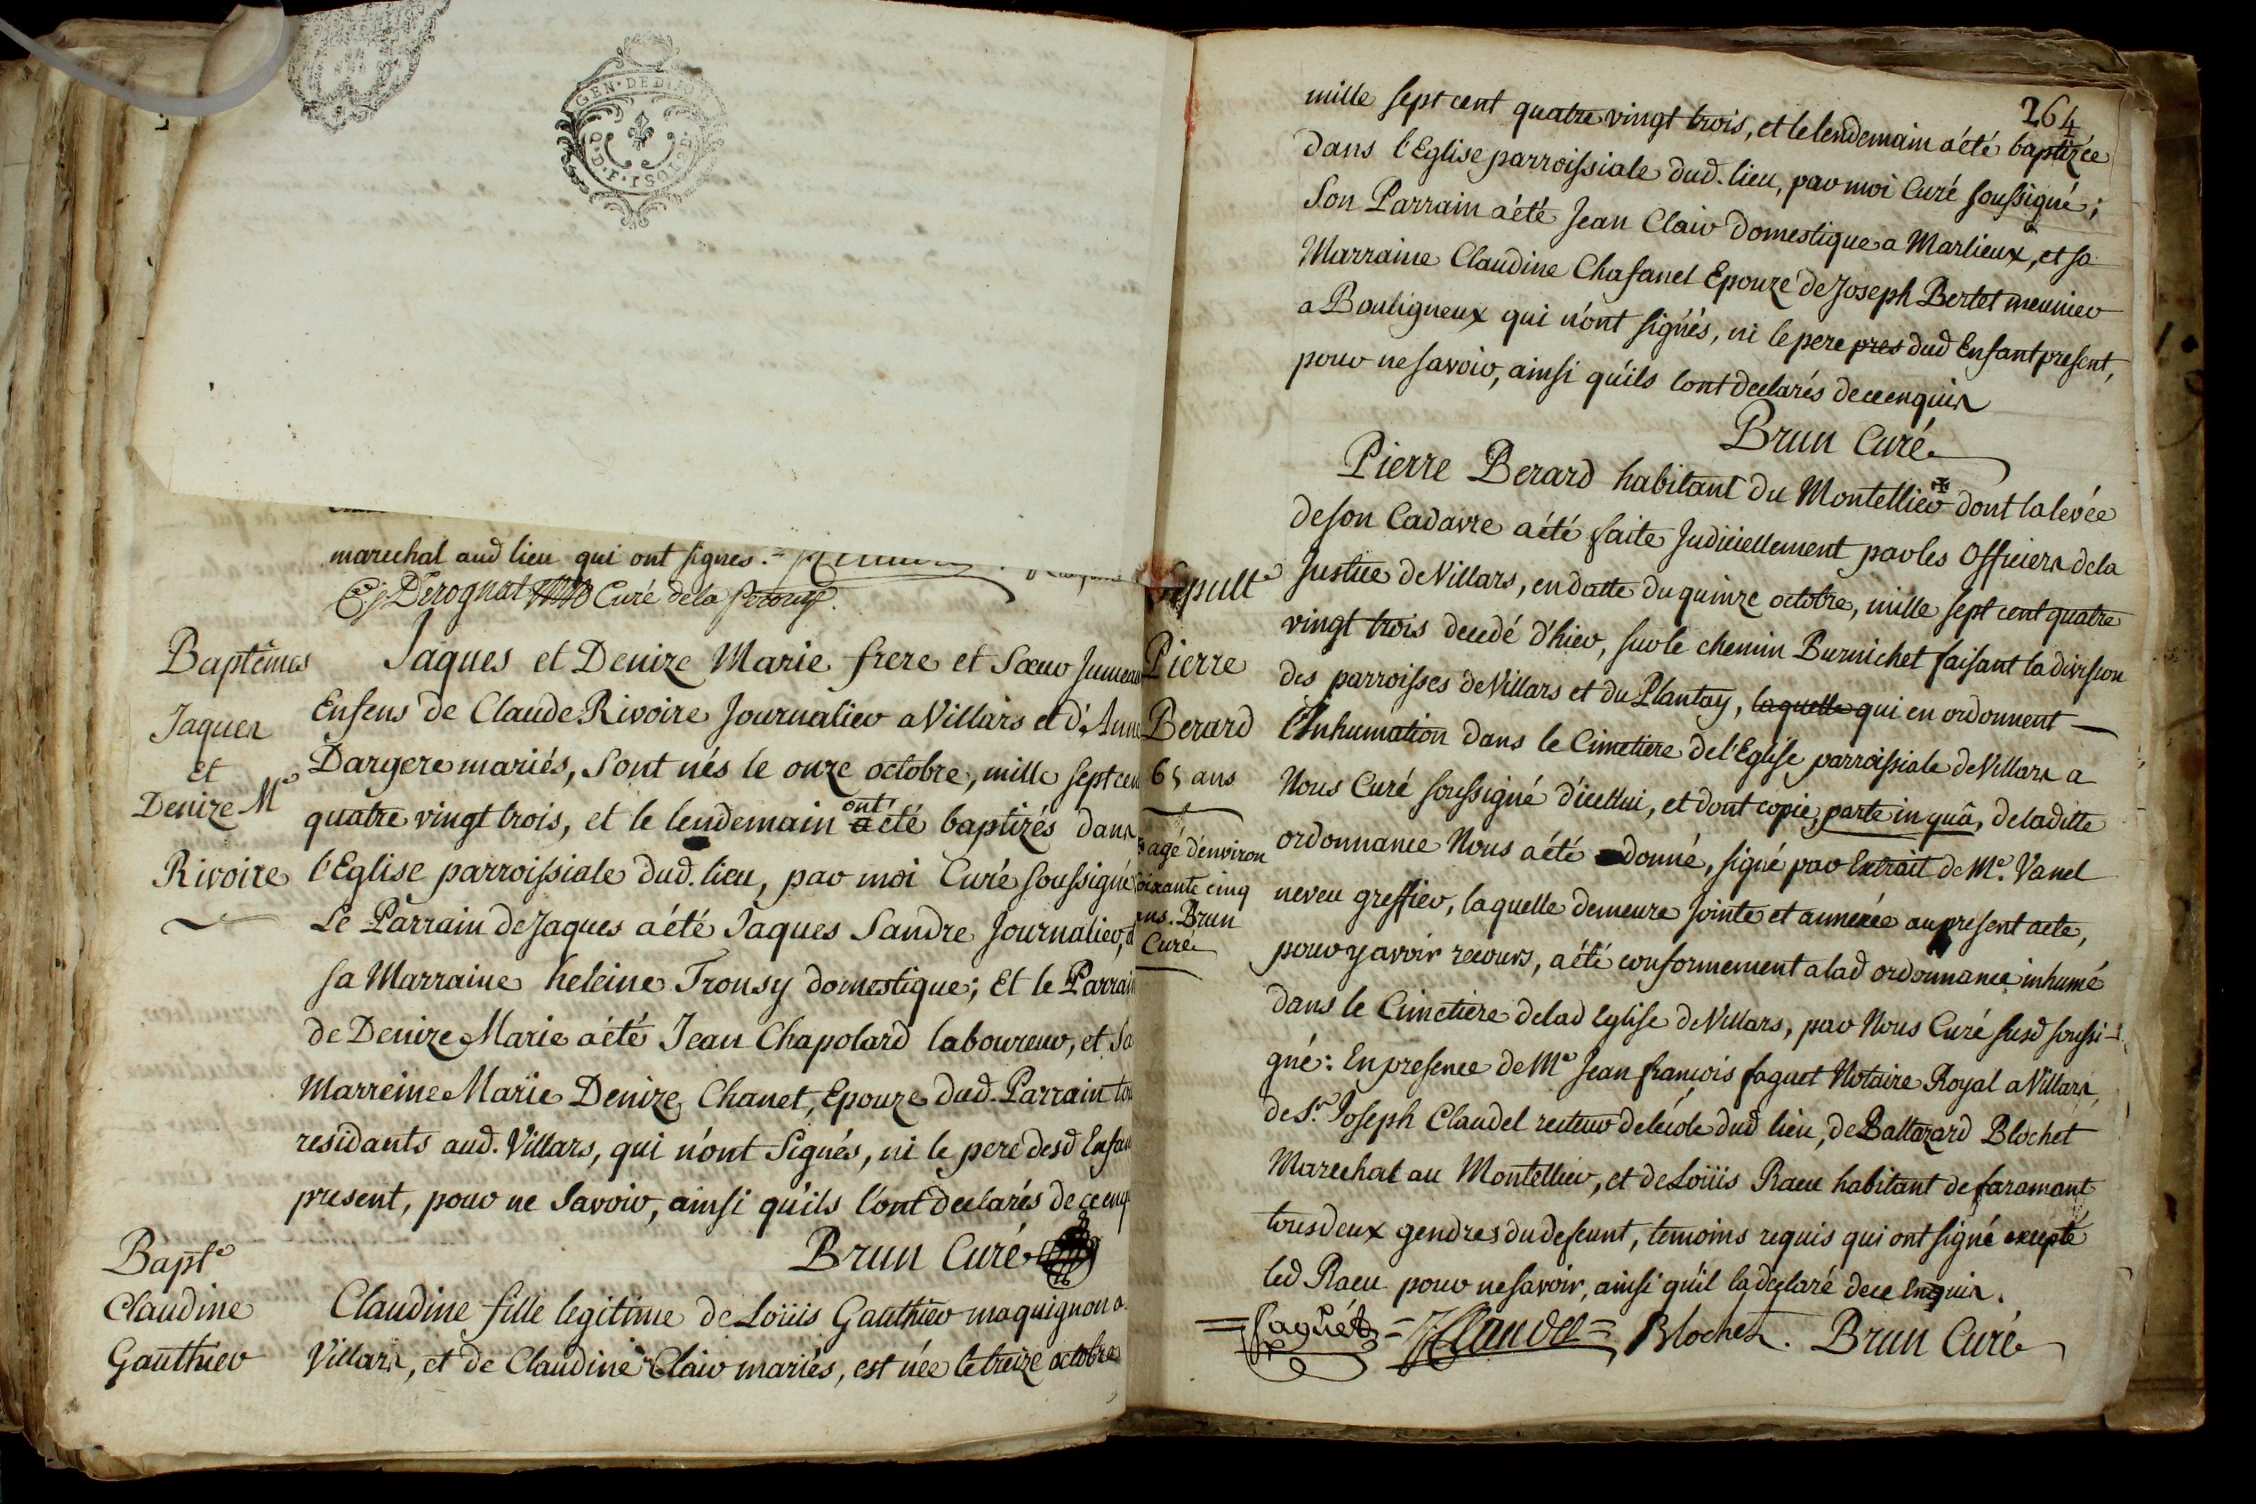 GEN·DE DIJON
marechal aud lieu qui ont signes.
Derognat Curé de la
Baptêmes
Jaques
et
Denize Mᵉ
Rivoire
Jaques et Denize Marie frere et Sœur Jumeau
Ensens de Claude Rivoire Journalier a Villars et d'Anne
Dargere mariés, Sont nés le onze octobre, mille sept cen
quatre vingt trois, et le lendemain a ont été baptizés dans
l'Eglise parroissiale dud. lieu, par moi Curé soussigné
Le Parrain de Jaques a été Jaques Sandre Journalier, et
sa Marraine heleine Tronsy domestique; Et le Parrain
de Denize Marie a été Jean Chapolard laboureur, et Sa
Marreine Marie Denize Chanet, Epouze dud. Parrain tou
residants aud. Villars, qui n'ont Signés, ni le pere desd Enfan
present, pour ne Savoir, ainsi qu'ils l'ont declarés de ce enq
Brun Curé
Baptᵉ
Claudine
Gauthier
Claudine fille legitime de Loüis Gauthier maquignon a
Villars, et de Claudine Clair mariés, est née le treize octobre
264
mille sept cent quatre vingt trois, et le lendemain a été baptizée
dans l'Eglise parroissiale dud. lieu, par moi Curé soussigné;
Son Parrain a été Jean Clair Domestique a Marlieux, et sa
Marraine Claudine Chasanel Epouze de Joseph Bertet meunier
a Bouligneux qui n'ont signés, ni le pere pres dud Ensant present,
pour ne savoir, ainsi qu'ils l'ont declarés de ce enquis
Brun Curé
Sepultᵉ
Pierre
Berard
65 ans
agé d'environ
soixante cinq
ans. Brun
Curé
Pierre Berard habitant du Montellier dont la levée
de son Cadavre a été faite Judiciellement par les Officiers de la
Justice de Villars, en datte du quinze octobre, mille sept cent quatre
vingt trois decedé d'hier, sur le chemin Burnichet faisant la division
des parroisses de Villars et du Plantay, laquelle qui en ordonnent
l'Inhumation dans le Cimetiere de l'Eglise parroissiale de Villars a
Nous Curé soussigné d'icellui, et dont copie, parte in quâ, de laditte
ordonnance Nous a été donné, signé par Extrait de Mᵉ. Vanel
neveu greffier, laquelle demeure Jointe et annexée au present acte,
pour y avoir recours, a été conformement a lad ordonnance inhumé
dans le Cimetiere de lad Eglise de Villars, par Nous Curé susd soussi-
gné: En presence de Mᵉ Jean francois faguet Notaire Royal a Villars,
de Sʳ. Joseph Claudel recteur de l'école dud lieu, de Baltazard Blochet
Marechal au Montellier, et de Loüis Racu habitant de faramant
tous deux gendres du defeunt, temoins requis qui ont signé excepté
led Racu pour ne savoir, ainsi qu'il la declaré de ce Enquis.
faguet Claudel Blochet. Brun Curé